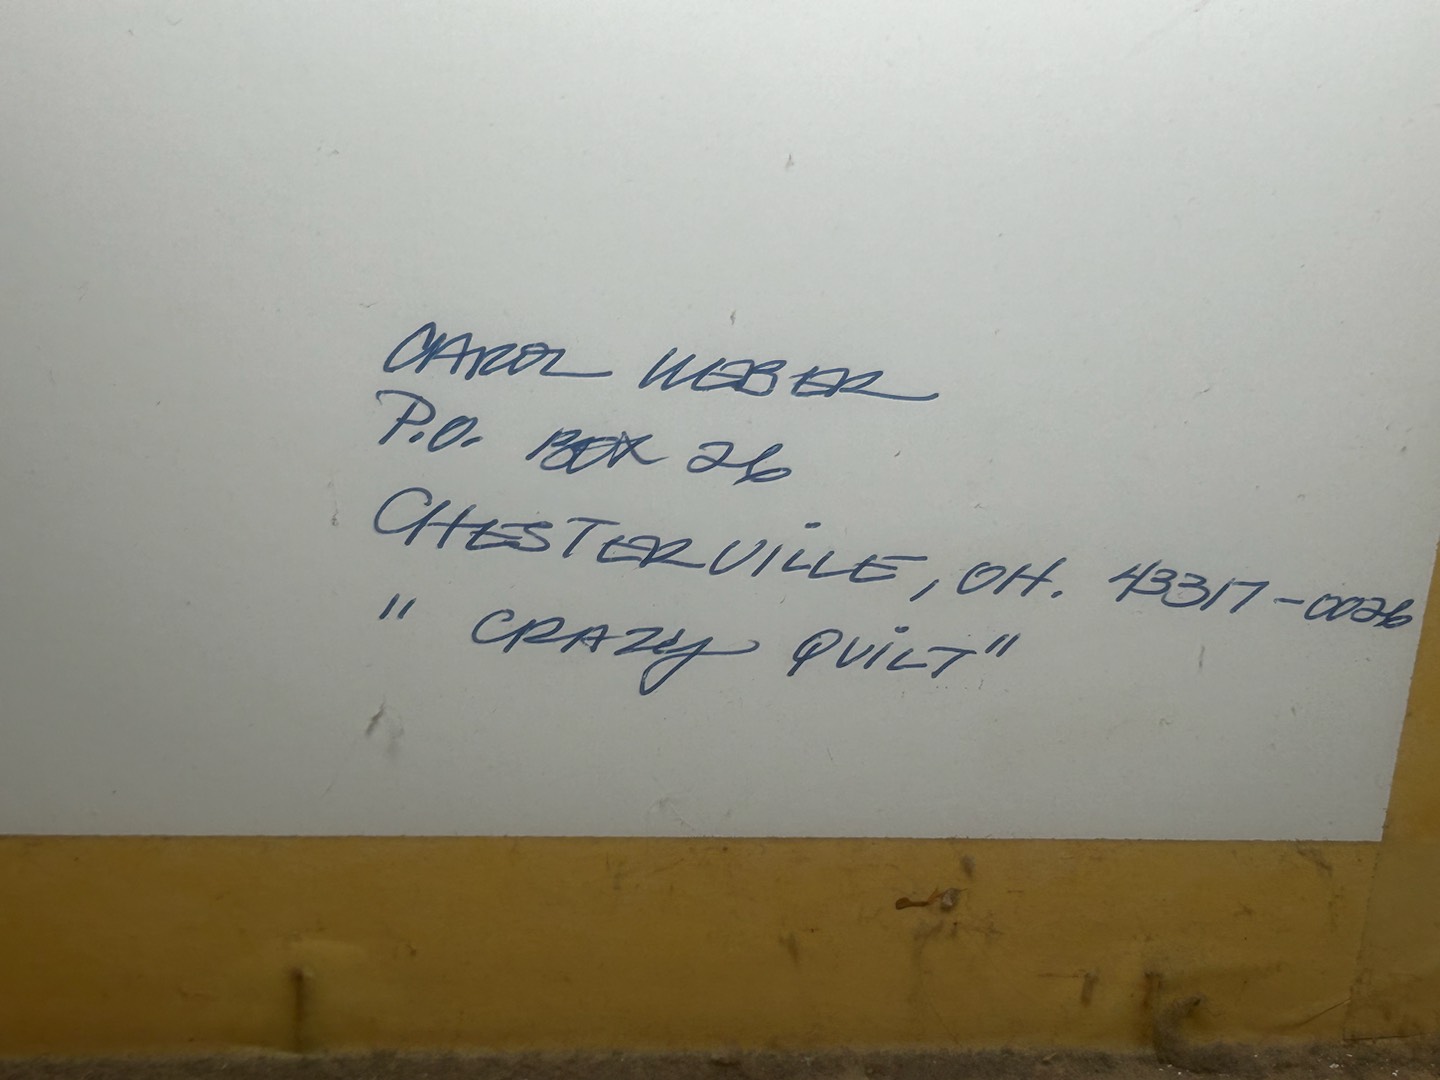 CAROL WEBER
P.O. BOX 26
CHESTERVILLE, OH. 43317-0026
" CRAZY QUILT"